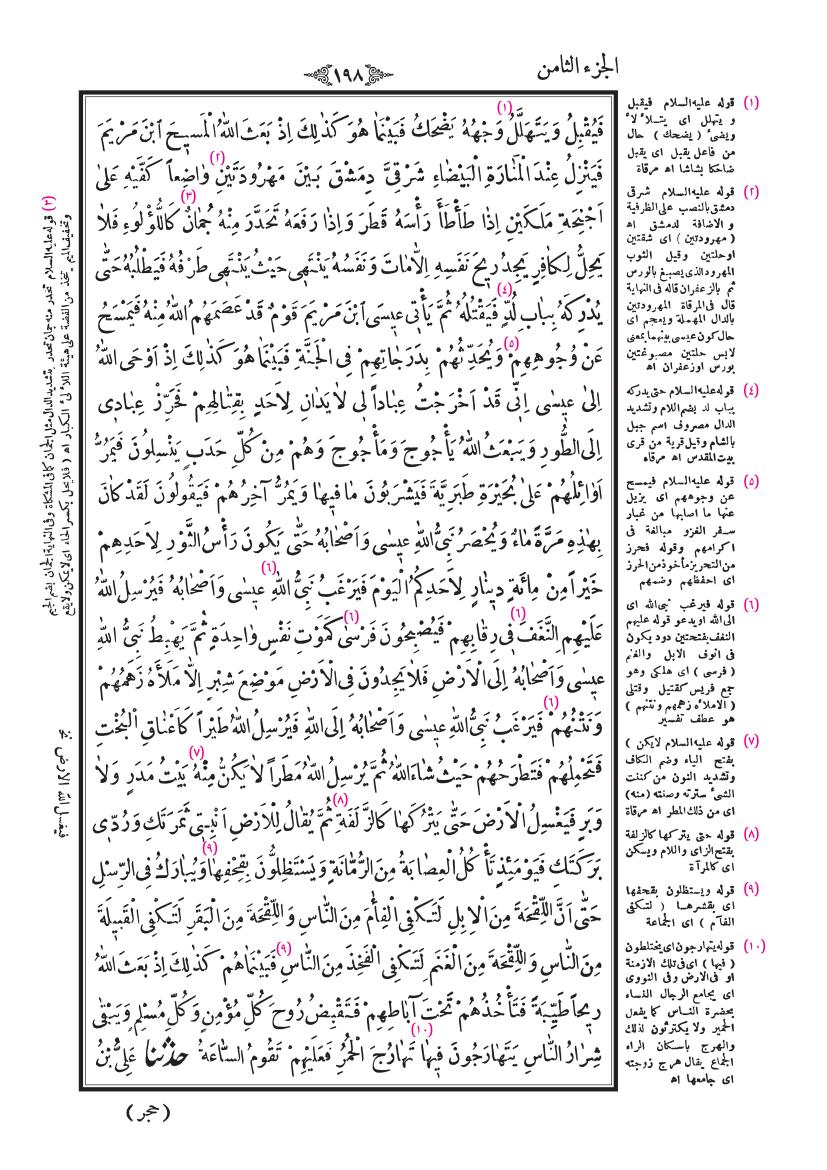 الجزء الثامن
﴿١٩٨﴾
فَيُقْبِلُ وَيَتَهَلَّلُ (١) وَجْهُهُ يَضْحَكُ فَبَيْنَمَا هُوَ كَذٰلِكَ اِذْ بَعَثَ اللهُ الْمَسِيحَ ابْنَ مَرْيَمَ
فَيَنْزِلُ عِنْدَ الْمَنَارَةِ الْبَيْضَاءِ شَرْقِىَّ دِمَشْقَ بَيْنَ مَهْرُودَتَيْنِ (٢) وَاضِعاً كَفَّيْهِ عَلىٰ
اَجْنِحَةِ مَلَكَيْنِ اِذَا طَأْطَأَ رَأْسَهُ قَطَرَ وَاِذَا رَفَعَهُ تَحَدَّرَ مِنْهُ (٣) جُمَانٌ كَاللُّؤْلُوءِ فَلَا
يَحِلُّ لِكَافِرٍ يَجِدُ رِيحَ نَفَسِهِ اِلَّا مَاتَ وَنَفَسُهُ يَنْتَهِى حَيْثُ يَنْتَهِى طَرْفُهُ فَيَطْلُبُهُ حَتّٰى
يُدْرِكَهُ بِبَابِ لُدٍّ (٤) فَيَقْتُلُهُ ثُمَّ يَأْتِى عِيسَى ابْنَ مَرْيَمَ قَوْمٌ قَدْ عَصَمَهُمُ اللهُ مِنْهُ فَيَمْسَحُ
عَنْ وُجُوهِهِمْ (٥) وَيُحَدِّثُهُمْ بِدَرَجَاتِهِمْ فِى الْجَنَّةِ فَبَيْنَمَا هُوَ كَذٰلِكَ اِذْ اَوْحَى اللهُ
اِلىٰ عِيسٰى اِنِّى قَدْ اَخْرَجْتُ عِبَاداً لِى لَا يَدَانِ لِاَحَدٍ بِقِتَالِهِمْ فَحَرِّزْ عِبَادِى
اِلَى الطُّورِ وَيَبْعَثُ اللهُ يَأْجُوجَ وَمَأْجُوجَ وَهُمْ مِنْ كُلِّ حَدَبٍ يَنْسِلُونَ فَيَمُرُّ
اَوَائِلُهُمْ عَلىٰ بُحَيْرَةِ طَبَرِيَّةَ فَيَشْرَبُونَ مَا فِيهَا وَيَمُرُّ آخِرُهُمْ فَيَقُولُونَ لَقَدْ كَانَ
بِهٰذِهِ مَرَّةً مَاءٌ وَيُحْصَرُ نَبِىُّ اللهِ عِيسٰى وَاَصْحَابُهُ حَتّٰى يَكُونَ رَأْسُ الثَّوْرِ لِاَحَدِهِمْ
خَيْراً مِنْ مِائَةِ دِينَارٍ لِاَحَدِكُمُ الْيَوْمَ فَيَرْغَبُ (٦) نَبِىُّ اللهِ عِيسٰى وَاَصْحَابُهُ فَيُرْسِلُ اللهُ
عَلَيْهِمُ النَّغَفَ (٦) فِى رِقَابِهِمْ فَيُصْبِحُونَ فَرْسٰى (٦) كَمَوْتِ نَفْسٍ وَاحِدَةٍ ثُمَّ يَهْبِطُ نَبِىُّ اللهِ
عِيسٰى وَاَصْحَابُهُ اِلَى الْاَرْضِ فَلَا يَجِدُونَ فِى الْاَرْضِ مَوْضِعَ شِبْرٍ اِلَّا مَلَأَهُ زَهَمُهُمْ
وَنَتْنُهُمْ (٦) فَيَرْغَبُ نَبِىُّ اللهِ عِيسٰى وَاَصْحَابُهُ اِلَى اللهِ فَيُرْسِلُ اللهُ طَيْراً كَاَعْنَاقِ الْبُخْتِ
فَتَحْمِلُهُمْ فَتَطْرَحُهُمْ حَيْثُ شَاءَ اللهُ ثُمَّ يُرْسِلُ اللهُ مَطَراً لَا يَكُنُّ (٧) مِنْهُ بَيْتُ مَدَرٍ وَلَا
وَبَرٍ فَيَغْسِلُ الْاَرْضَ حَتّٰى يَتْرُكَهَا كَالزَّلَفَةِ (٨) ثُمَّ يُقَالُ لِلْاَرْضِ اَنْبِتِى ثَمَرَتَكِ وَرُدِّى
بَرَكَتَكِ فَيَوْمَئِذٍ تَأْكُلُ الْعِصَابَةُ مِنَ الرُّمَّانَةِ وَيَسْتَظِلُّونَ بِقِحْفِهَا (٩) وَيُبَارَكُ فِى الرِّسْلِ
حَتّٰى اَنَّ اللِّقْحَةَ مِنَ الْاِبِلِ لَتَكْفِى الْفِئَامَ مِنَ النَّاسِ وَاللِّقْحَةَ مِنَ الْبَقَرِ لَتَكْفِى الْقَبِيلَةَ
مِنَ النَّاسِ وَاللِّقْحَةَ مِنَ الْغَنَمِ لَتَكْفِى الْفَخِذَ مِنَ النَّاسِ (٩) فَبَيْنَمَا هُمْ كَذٰلِكَ اِذْ بَعَثَ اللهُ
رِيحاً طَيِّبَةً فَتَأْخُذُهُمْ تَحْتَ آبَاطِهِمْ فَتَقْبِضُ رُوحَ كُلِّ مُؤْمِنٍ وَكُلِّ مُسْلِمٍ وَيَبْقٰى
شِرَارُ النَّاسِ يَتَهَارَجُونَ فِيهَا (١٠) تَهَارُجَ الْحُمُرِ فَعَلَيْهِمْ تَقُومُ السَّاعَةُ حَدَّثَنَا عَلِىُّ بْنُ
( حجر )
(١) قوله عليه السلام فيقبل
و يتهلل اى يتلألأ
ويضىء ( يضحك ) حال
من فاعل يقبل اى يقبل
ضاحكا بشاشا اه مرقاة
(٢) قوله عليه السلام شرقى
دمشق بالنصب على الظرفية
و الاضافة لدمشق اه
( مهرودتين ) اى شقتين
اوحلتين وقيل الثوب
المهرود الذى يصبغ بالورس
ثم بالزعفران قاله فى النهاية
قال فى المرقاة المهرودتين
بالدال المهملة ويعجم اى
حال كون عيسى بينهما بمعنى
لابس حلتين مصبوغتين
بورس اوزعفران اه
(٤) قوله عليه السلام حتى يدركه
بباب لد بضم اللام وتشديد
الدال مصروف اسم جبل
بالشام وقيل قرية من قرى
بيت المقدس اه مرقاة
(٥) قوله عليه السلام فيمسح
عن وجوههم اى يزيل
عنها ما اصابها من غبار
سفر الغزو مبالغة فى
اكرامهم وقوله فحرز
من التحريز مأخوذ من الحرز
اى احفظهم وضمهم
(٦) قوله فيرغب نبى الله اى
الى الله اويدعو قوله عليهم
النغف بفتحتين دود يكون
فى انوف الابل والغنم
( فرسى ) اى هلكى وهو
جمع فريس كقتيل وقتلى
( الاملاءه زهمهم ونتنهم )
هو عطف تفسير
(٧) قوله عليه السلام لايكن )
بفتح الياء وضم الكاف
وتشديد النون من كننت
الشىء سترته وصنته (منه)
اى من ذلك المطر اه مرقاة
(٨) قوله حتى يتركها كالزلفة
بفتح الزاى واللام ويسكن
اى كالمرآة
(٩) قوله ويستظلون بقحفها
اى بقشرها ( لتكفى
الفآم ) اى الجماعة
(١٠) قوله يتهارجون اى يختلطون
( فيها ) اى فى تلك الازمنة
او فى الارض وفى النووى
اى يجامع الرجال النساء
بحضرة الناس كما يفعل
الحمير ولا يكترثون لذلك
والهرج باسكان الراء
الجماع يقال هرج زوجته
اى جامعها اه
(٣) قوله عليه السلام تحدر منه جمان تحدر بتشديد الدال مثل الجمان كما فى المشكاة وفى النهاية الجمان بضم الجيم
وتخفيف الميم يتخذ من الفضة على هيئة اللآلئ الكبار اه ( فلا يحل بكسر الحاء اى لا يمكن ولا يقع
فيغسل الله الارض نخ